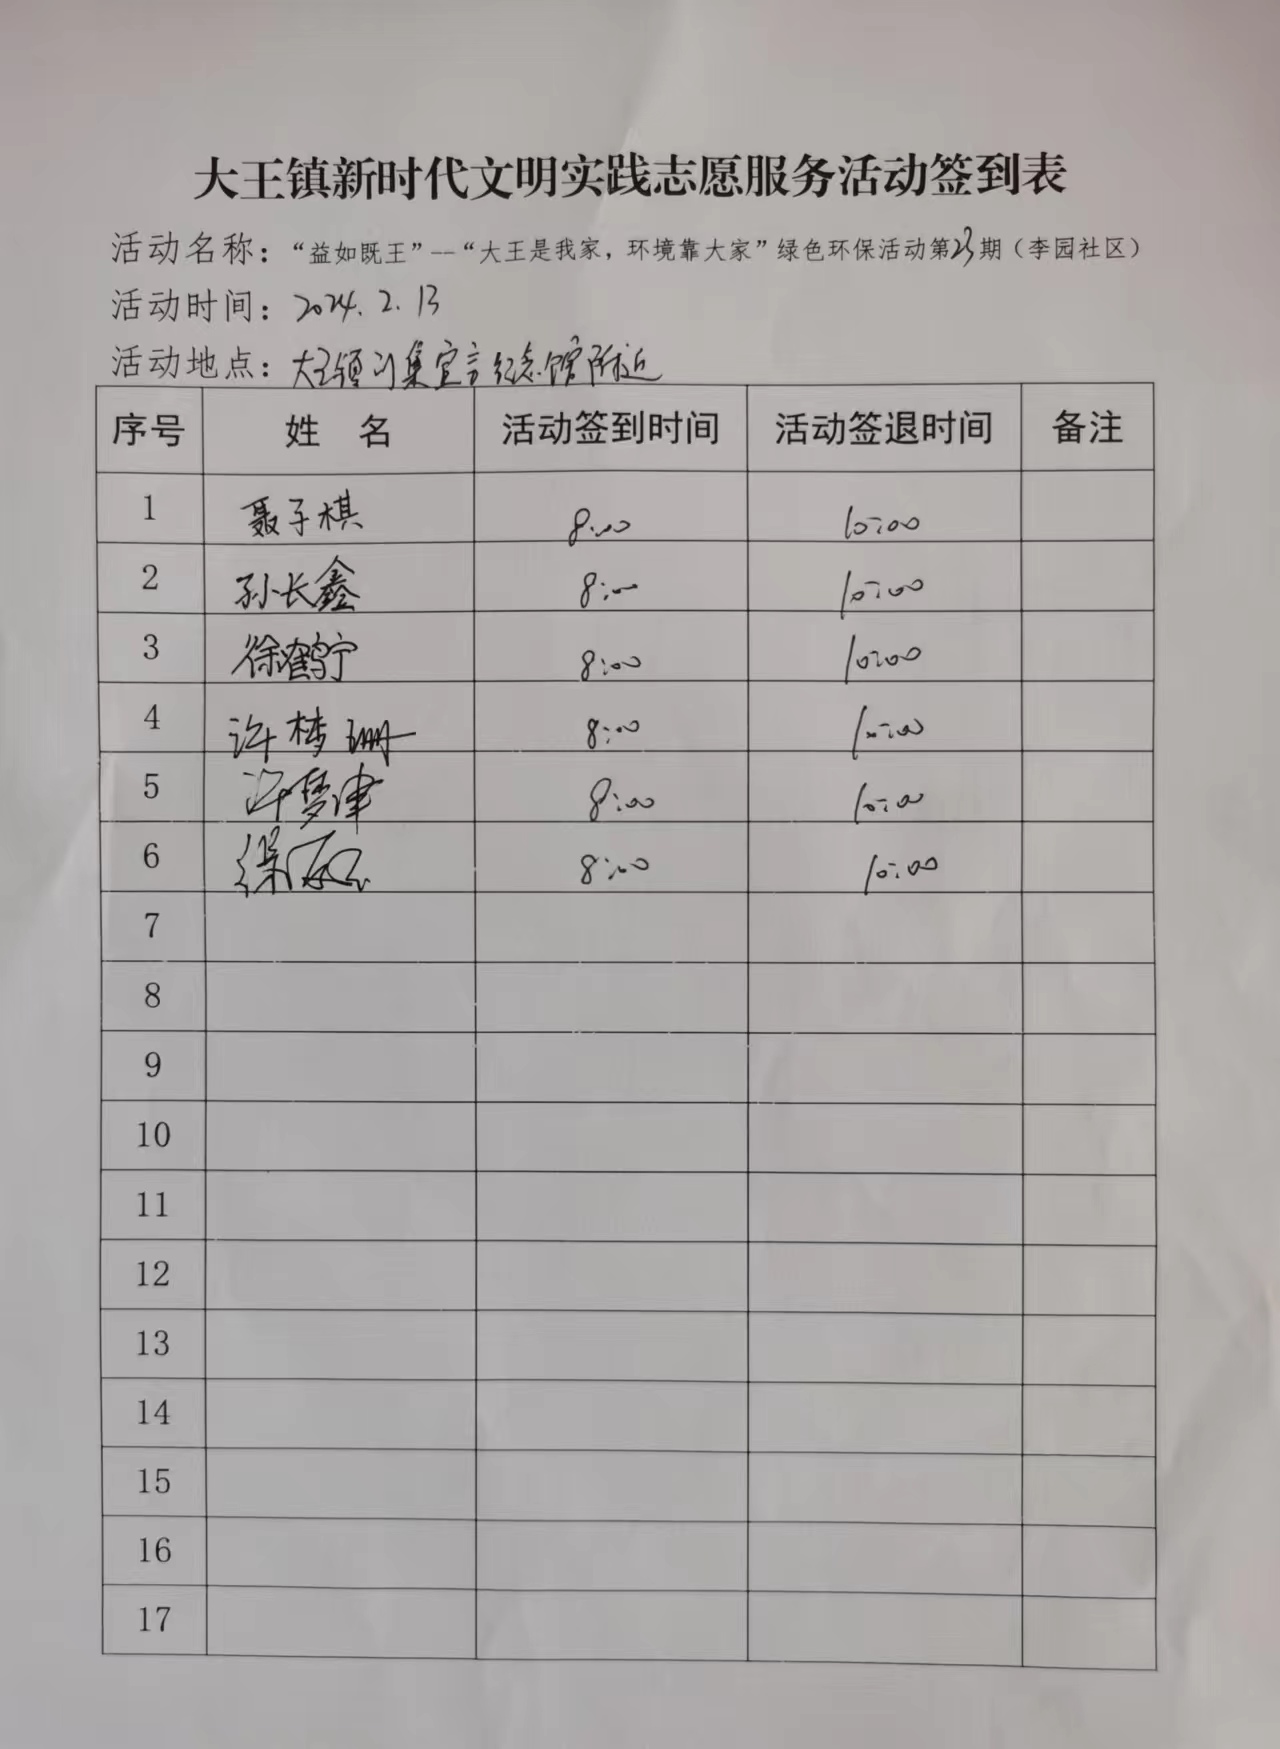 大王镇新时代文明实践志愿服务活动签到表
活动名称：“益如既王”—“大王是我家，环境靠大家”绿色环保活动第23期（李园社区）
活动时间：2024.2.13
活动地点：大王镇刘集宣言纪念馆附近
序号 姓 名 活动签到时间 活动签退时间 备注
1 聂子棋 8:00 10:00
2 孙长鑫 8:00 10:00
3 徐鹤宁 8:00 10:00
4 许梦珊 8:00 10:00
5 许梦津 8:00 10:00
6 8:00 10:00
7
8
9
10
11
12
13
14
15
16
17